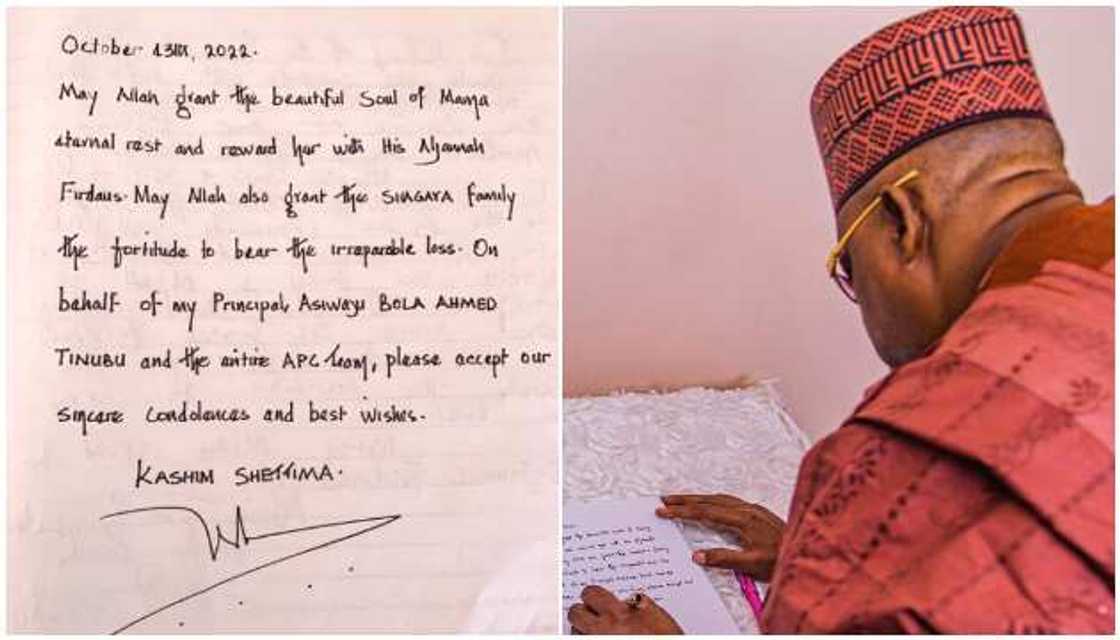 October 13th, 2022.
May Allah grant the beautiful Soul of Mama
eternal rest and reward her with His Aljannah
Firdaus. May Allah also grant the SHAGAYA family
the fortitude to bear the irreparable loss. On
behalf of my Principal, Asiwaju BOLA AHMED
TINUBU and the entire APC team, please accept our
sincere condolences and best wishes.
KASHIM SHETTIMA.